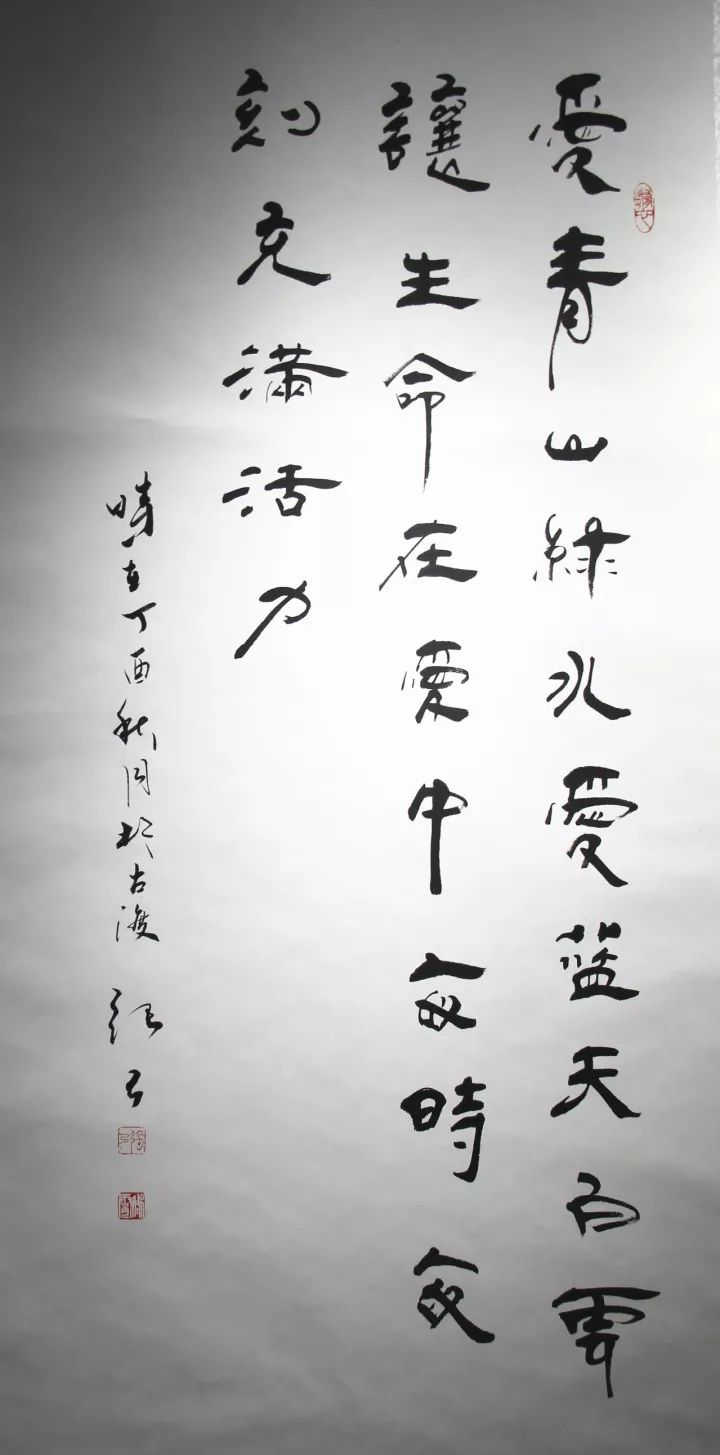 愛青山綠水愛藍天白雲
讓生命在愛中每時每
刻充滿活力
時在丁酉秋月於古渡